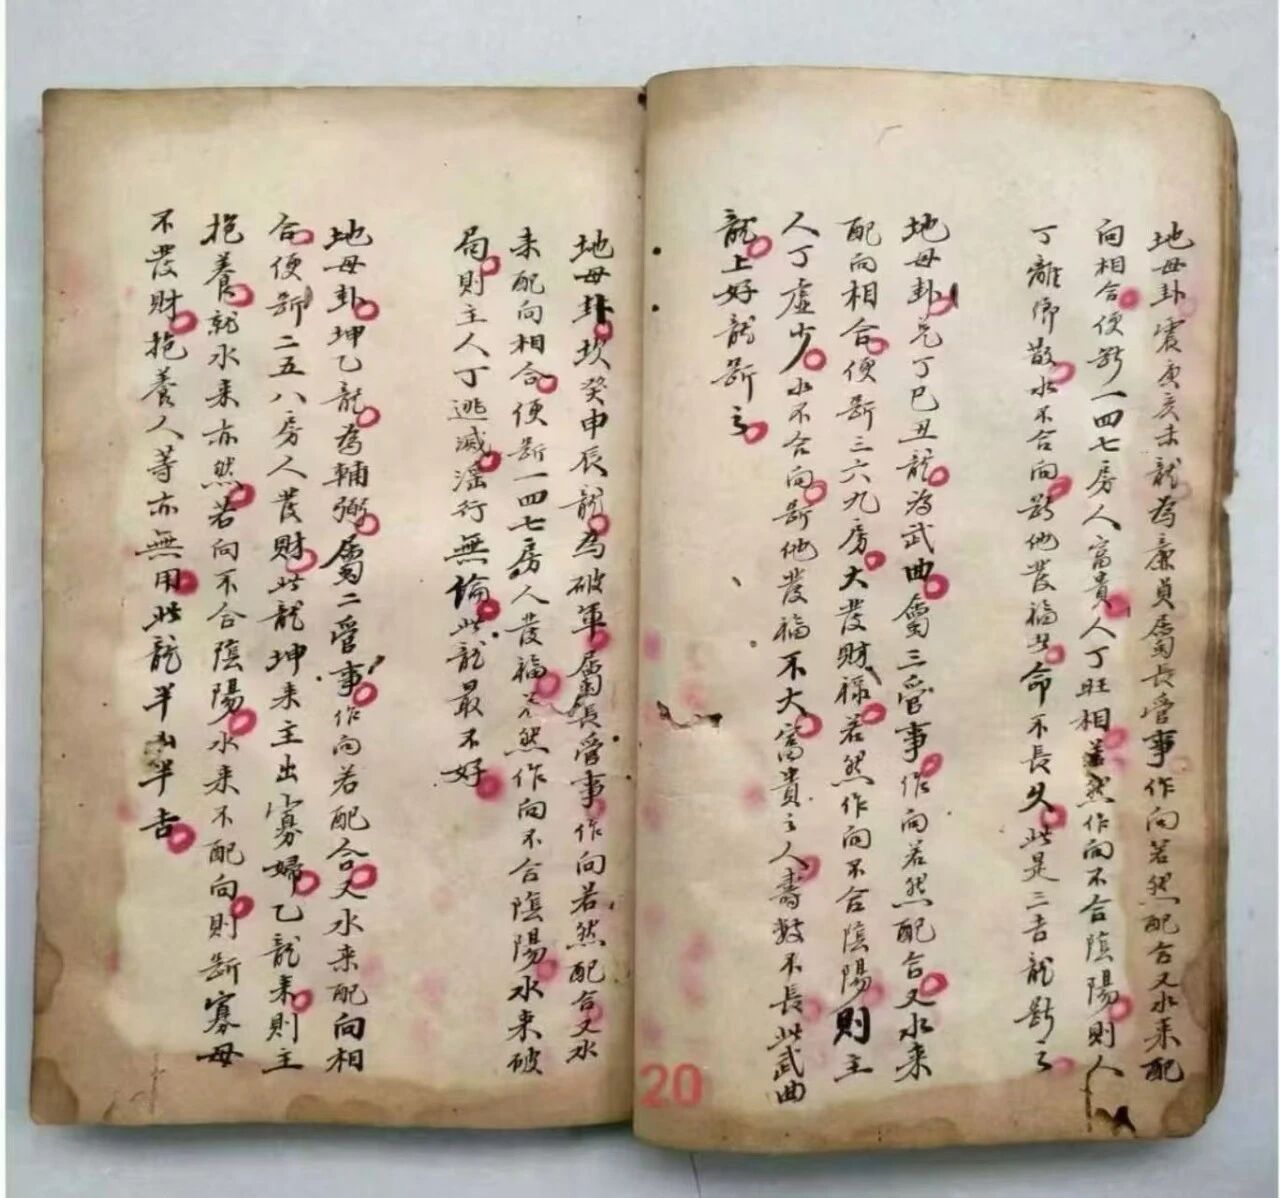 地母卦震庚亥未龍為廉貞屬長管事作向若然配合又水來配
向相合便斷一四七房人富貴人丁旺相若然作向不合陰陽則人
丁離鄉散水不合向斷他發福 命不長久此是三吉龍斷之
地母卦兌丁巳丑龍為武曲屬三管事作向若然配合又水來
配向相合便斷三六九房大發財祿若然作向不合陰陽則主
人丁虛少水不合向斷他發福不大富貴之人壽數不長此武曲
龍上好龍斷之
地母卦坎癸申辰龍為破軍屬長管事作向若然配合又水
來配向相合便斷一四七房人發福若然作向不合陰陽水來破
局則主人丁逃滅滛行無論此龍最不好
地母卦坤乙龍為輔弼屬二管事作向若配合又水來配向相
合便斷二五八房人發財此龍坤來主出寡婦乙龍來則主
抱養就水來亦然若向不合陰陽水來不配向則斷寡母
不發財抱養人等亦無用此龍半凶半吉
20